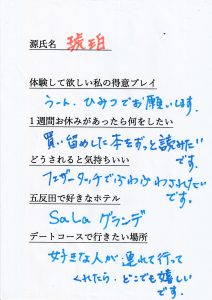 源氏名 琥珀
体験して欲しい私の得意プレイ
うーん、ひみつでお願いします。
1週間お休みがあったら何をしたい
買い留めした本をずっと読みたい
です。
どうされると気持ちいい
フェザータッチでふわふわされたい
です。
五反田で好きなホテル
SaLa グランデ
デートコースで行きたい場所
好きな人が連れて行って
くれたら、どこでも嬉しい
です。